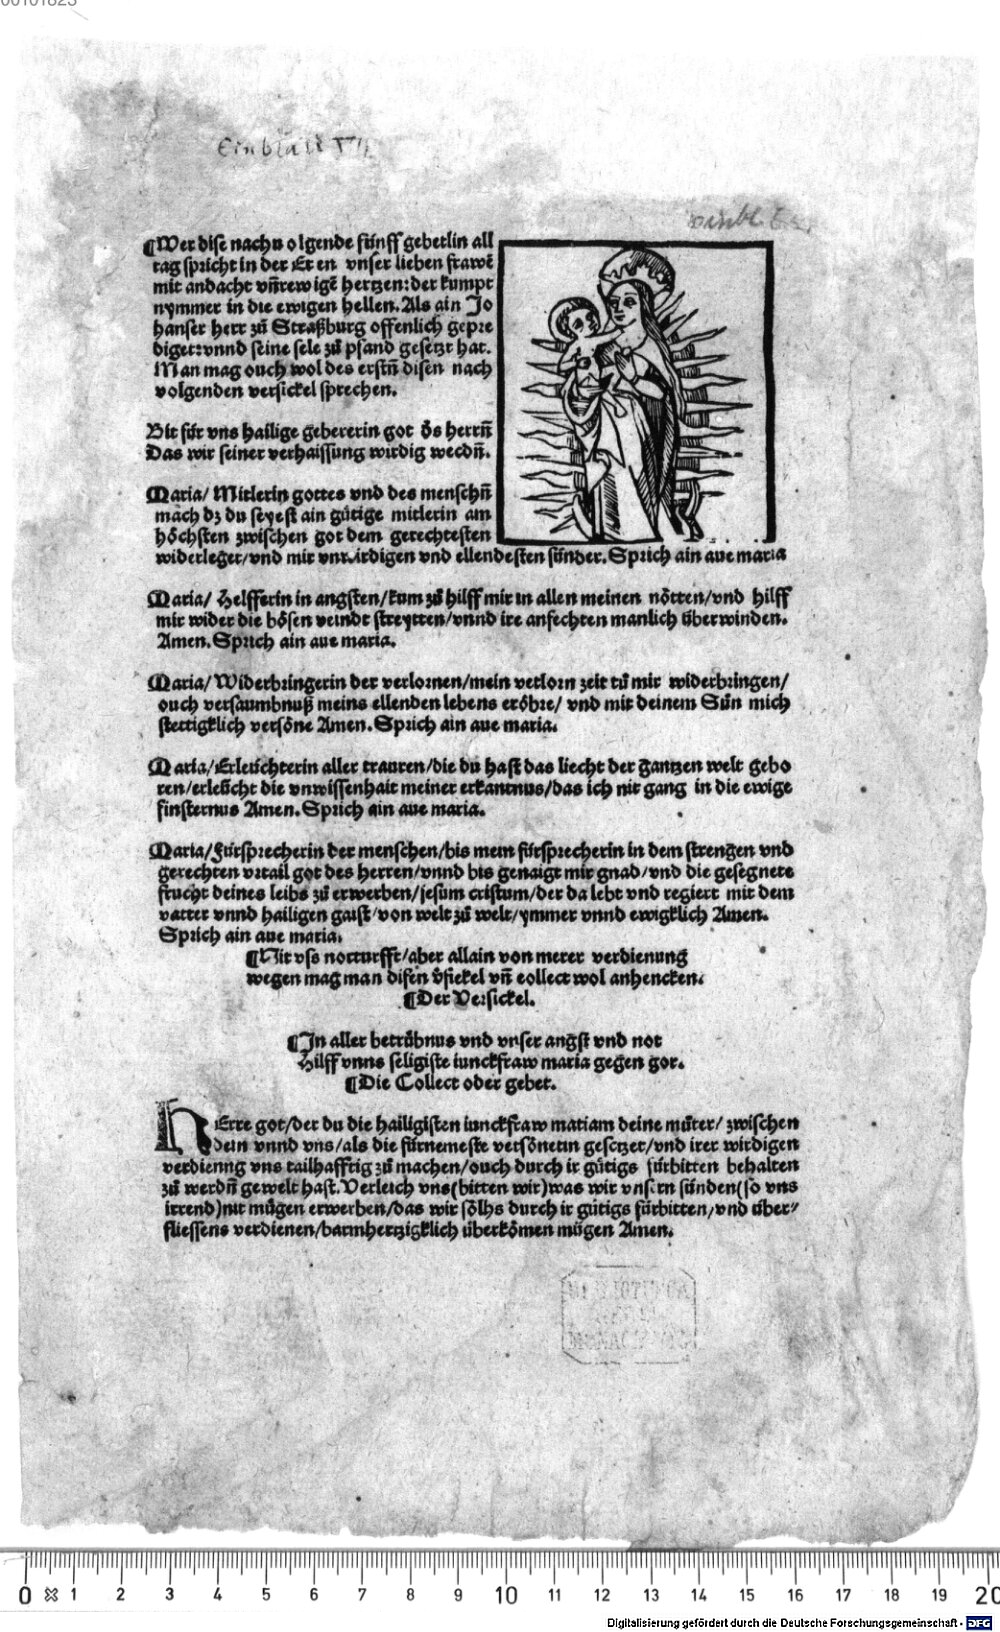 00101823
Einblatt VII
¶Wer dise nachuolgende fünff gebetlin all
tag spricht in der Eren vnser lieben frawē
mit andacht vn̄rewigē hertzen: der kumpt
nymmer in die ewigen hellen. Als ain Jo
hanser herr zů Straßburg offenlich gepre
diget: vnnd seine sele zů pfand gesetzt hat.
Man mag ouch wol des erstn̄ disen nach
volgenden versickel sprechen.
Bit für vns hailige gebererin got ds herrn̄
Das wir seiner verhaissung wirdig werdn̄.
Maria/ Mitlerin gottes vnd des menschn̄
mach dz du seyest ain gütige mitlerin am
höchsten zwischen got dem gerechtesten
widerleger/vnd mir vnwirdigen vnd ellendesten sünder. Sprich ain aue maria
Maria/ Helfferin in angsten/kum zů hilff mir in allen meinen nötten/vnd hilff
mir wider die bösen veindt streytten/vnnd ire anfechten manlich überwinden.
Amen. Sprich ain aue maria.
Maria/ Widerbringerin der verlornen/mein verlorn zeit tů mir widerbringen/
ouch versaumbnuß meins ellenden lebens eröbre/ vnd mit deinem Sün mich
stettigklich versöne Amen. Sprich ain aue maria.
Maria/Erleüchterin aller trauren/die du hast das liecht der gantzen welt gebo
ren/erleücht die vnwissenhait meiner erkantnus/das ich nit gang in die ewige
finsternus Amen. Sprich ain aue maria.
Maria/Fürsprecherin der menschen/bis mein fürsprecherin in dem strengen vnd
gerechten vrtail got des herren/vnnd bis genaigt mir gnad/vnd die gesegnete
frucht deines leibs zů erwerben/jesum cristum/der da lebt vnd regiert mit dem
vatter vnnd hailigen gaist/von welt zů welt/ymmer vnnd ewigklich Amen.
Sprich ain aue maria.
¶Nit vss notturfft/aber allain von merer verdienung
wegen mag man disen v̄sickel vn̄ collect wol anhencken.
¶Der Versickel.
¶In aller betrübnus vnd vnser angst vnd not
Hilff vnns seligiste iunckfraw maria gegen got.
¶Die Collect oder gebet.
HErre got/der du die hailigisten iunckfraw mariam deine můter/ zwischen
dein vnnd vns/als die fürnemeste versönerin gesetzet/vnd irer wirdigen
verdienng vns tailhafftig zů machen/ouch durch ir gütigs fürbitten behalten
zů werdn̄ gewelt hast. Verleich vns(bitten wir)was wir vnsern sünden(so vns
irrend)nit mügen erwerben/das wir sölhs durch ir gütigs fürbitten/vnd über⸗
fliessens verdienen/barmhertzigklich überkömen mügen Amen.
0 1 2 3 4 5 6 7 8 9 10 11 12 13 14 15 16 17 18 19 20
Digitalisierung gefördert durch die Deutsche Forschungsgemeinschaft - DFG